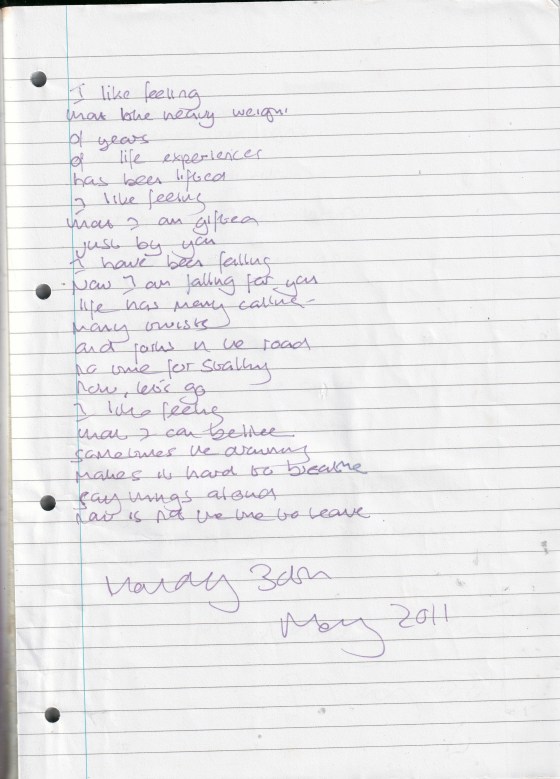 I like feeling
that the heavy weight
of years
of life experiences
has been lifted
I like feeling
that I am gifted
just by you
I have been falling
Now I am falling for you
life has many calling
many twists
and forks in the road
no time for stalling
now, let's go
I like feeling
that I can believe
sometimes the drowning
makes it hard to breathe
say things aloud
now is not the time to leave
May 2011